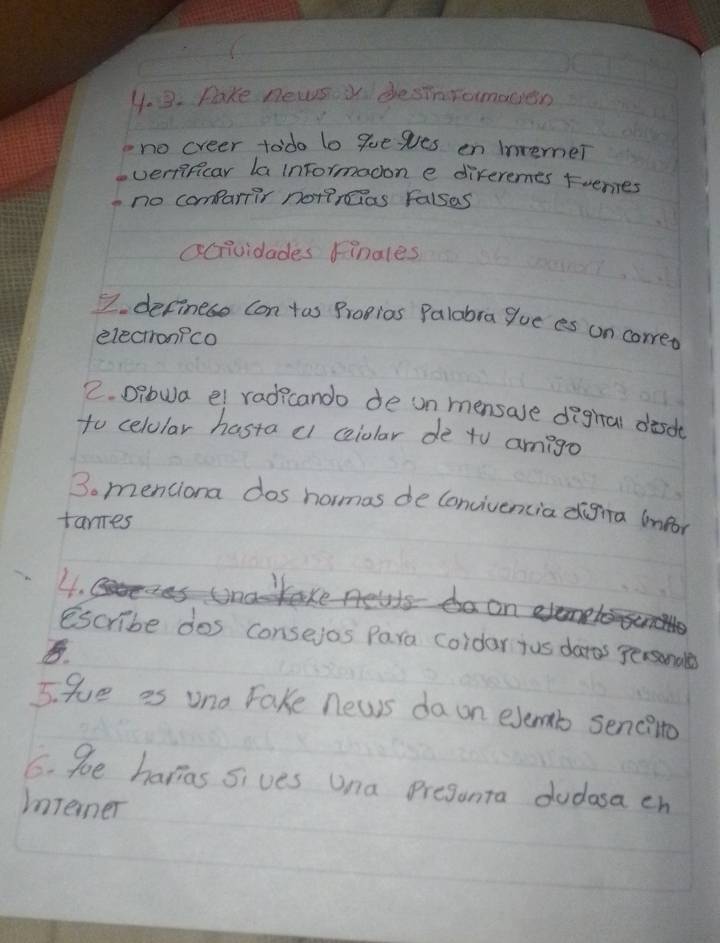 4.3. Fake news y desinformacion
no creer todo lo que ves en internet
verifificar la informacion e diferemes fuentes
no compartir noticias falsas
actividades Finales
1. defineso con tus Propias Palabra que es un correo
electronico
2. Dibuja el radicando de un mensaje digital desde
tu celular hasta el celular de tu amigo
3. menciona dos normas de convivencia digita impor
tantes
4. una fake news da un
escribe dos consejos Para coidar tus datos Personales
5. que es una Fake news da un ejemplo sencillo
6. que harias si ves una Pregunta dudosa en
Internet